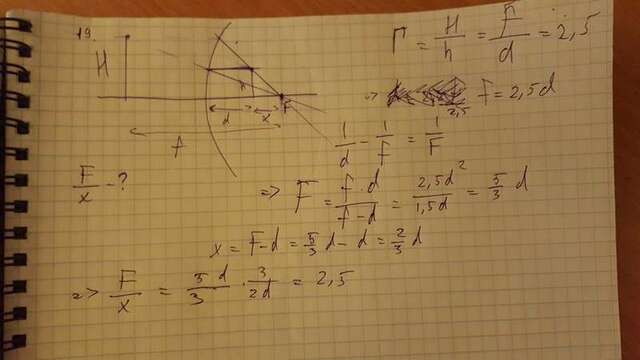 19.
Г = H/h = F/d = 2,5
H
h
F
d x
=> 2,5 f = 2,5d
f
1/d - 1/F = 1/F
F/x - ?
=> F = f·d/f-d = 2,5d²/1,5d = 5/3 d
x = F-d = 5/3 d - d = 2/3 d
=> F/x = 5d/3 · 3/2d = 2,5